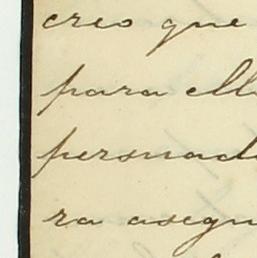 creo que
para ell
persuad
ra asegu